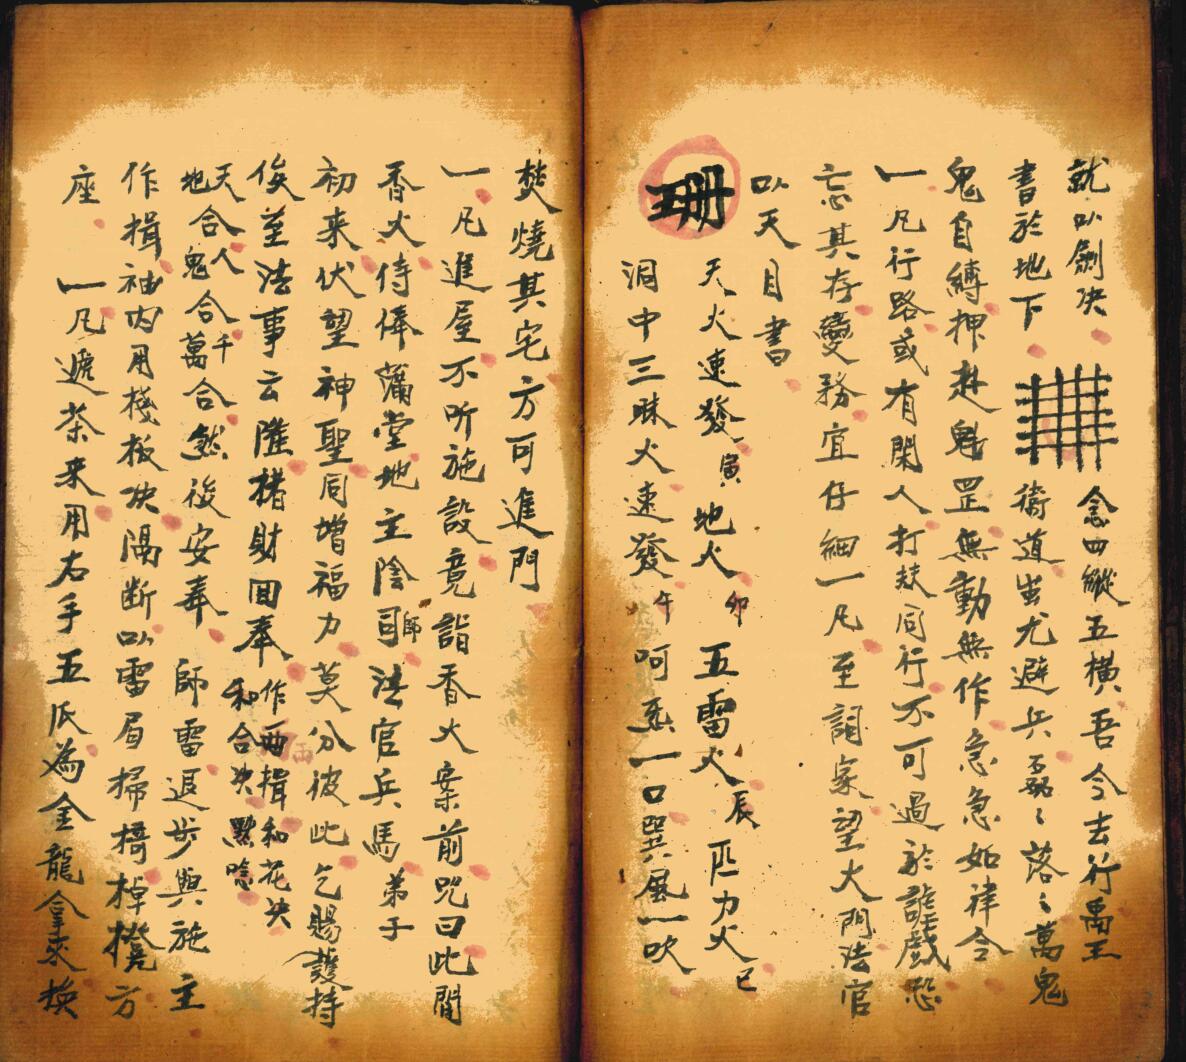 就以劍决
書於地下 念四縱五橫吾今去行禹王
衛道蚩尤避兵磊〻落〻萬鬼
鬼自縛押赴魁罡無動無作急急如律令
一凡行路或有閑人打扶同行不可過於誑戲恐
忘其存變務宜仔細一凡至詞家望大門法官
以天目書
天火速發寅 地火卯 五雷火辰 匹力火巳
洞中三昧火速發午 呵氣一口巽風一吹
焚燒其宅方可進門
一凡進屋不听施設竟詣香火案前咒曰此間
香火侍俸滿堂地主陰司師法官兵馬弟子
初来伏望神聖同增福力莫分彼此乞賜護持
俟至法事云隆楮財回奉 作兩揖和花决
和合决默唸
天合人
地合鬼合萬千合然後安奉 師雷退步與施主
作揖袖内用棧板决隔断以雷局掃 方
座 一凡遞茶来用右手五爪為金龍拿來換